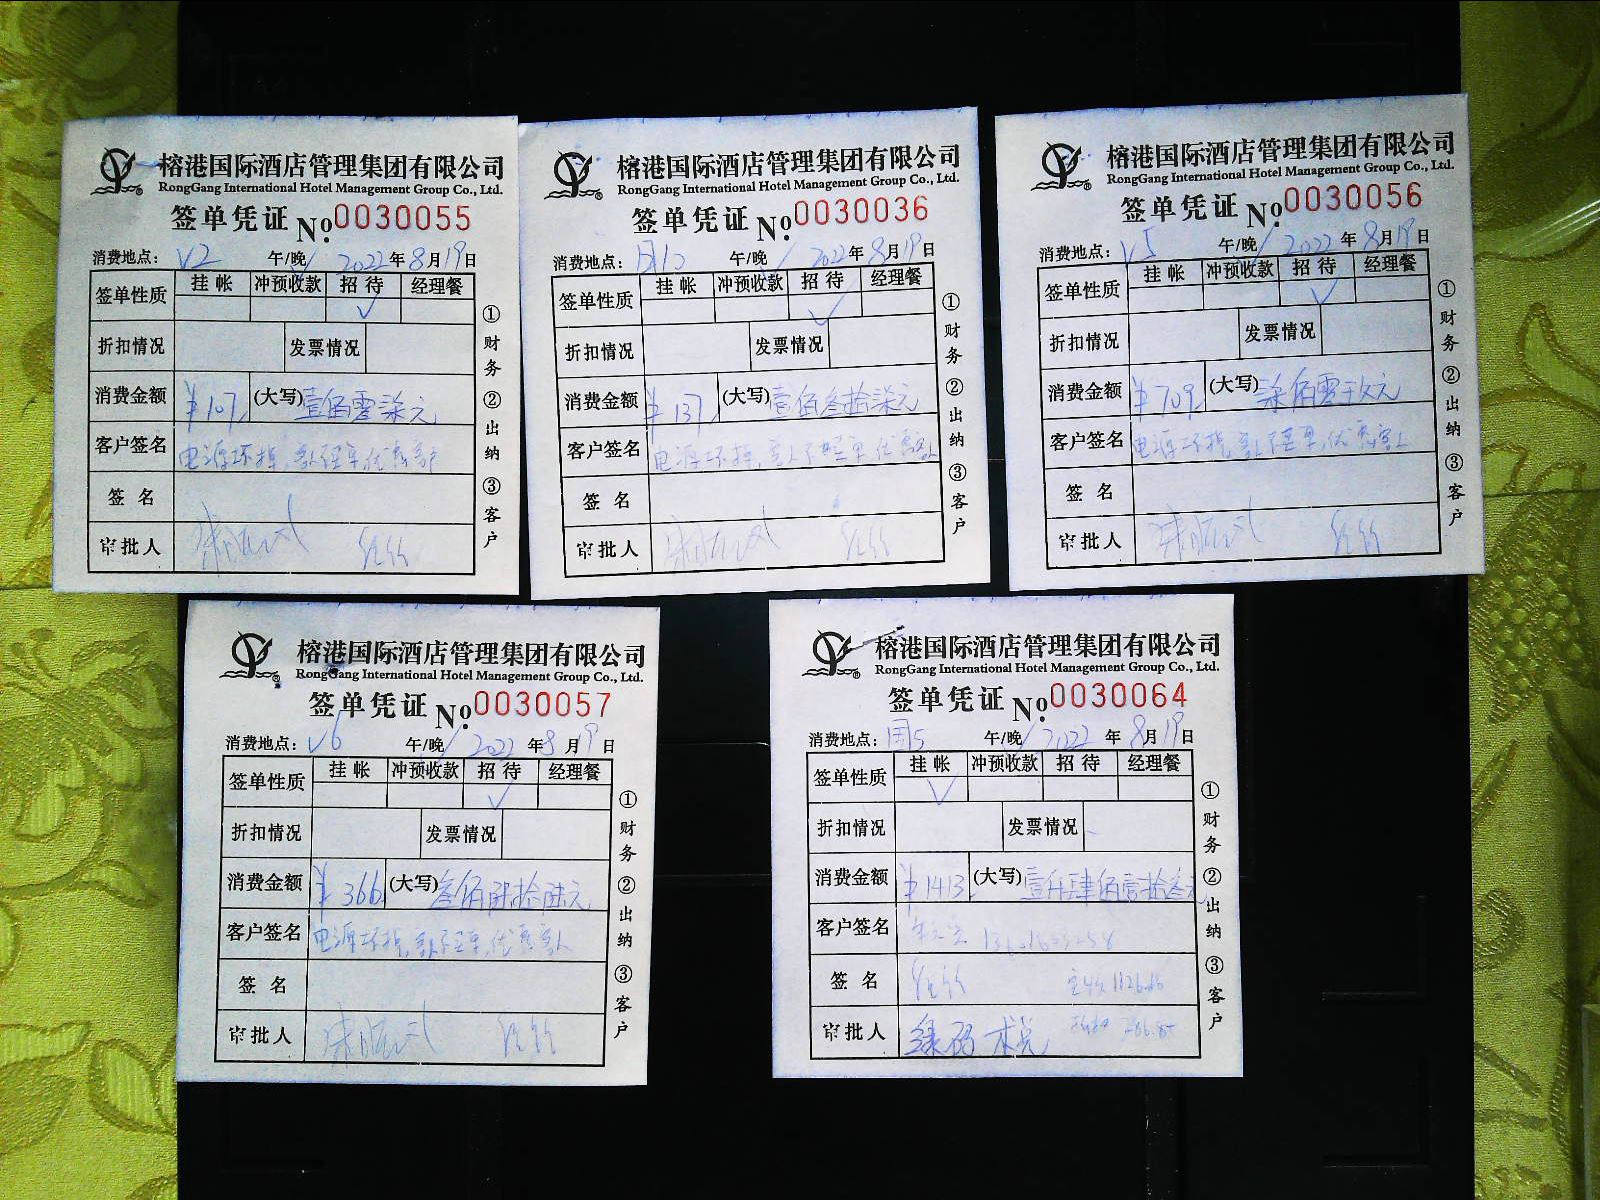 榕港国际酒店管理集团有限公司
RongGang International Hotel Management Group Co., Ltd.
签单凭证 No. 0030055
消费地点: V2 午/晚 2022年8月19日
签单性质 挂帐 冲预收款 招待 经理餐
✓
折扣情况 发票情况
消费金额 ¥107 (大写) 壹佰零柒元
客户签名 电源坏掉,
签名
审批人
①财务 ②出纳 ③客户
榕港国际酒店管理集团有限公司
RongGang International Hotel Management Group Co., Ltd.
签单凭证 No. 0030036
消费地点: 午/晚 2022年8月19日
签单性质 挂帐 冲预收款 招待 经理餐
✓
折扣情况 发票情况
消费金额 ¥137 (大写) 壹佰叁拾柒元
客户签名 电源坏掉,客人不买单,优惠客人
签名
审批人
①财务 ②出纳 ③客户
榕港国际酒店管理集团有限公司
RongGang International Hotel Management Group Co., Ltd.
签单凭证 No. 0030056
消费地点: V5 午/晚 2022年8月19日
签单性质 挂帐 冲预收款 招待 经理餐
✓
折扣情况 发票情况
消费金额 ¥709 (大写) 柒佰零玖元
客户签名 电源坏掉,客人不买单,优惠客人
签名
审批人
①财务 ②出纳 ③客户
榕港国际酒店管理集团有限公司
RongGang International Hotel Management Group Co., Ltd.
签单凭证 No. 0030057
消费地点: V6 午/晚 2022年8月19日
签单性质 挂帐 冲预收款 招待 经理餐
✓
折扣情况 发票情况
消费金额 ¥366 (大写) 叁佰陆拾陆元
客户签名 电源坏掉,客人不买单,优惠客人
签名
审批人
①财务 ②出纳 ③客户
榕港国际酒店管理集团有限公司
RongGang International Hotel Management Group Co., Ltd.
签单凭证 No. 0030064
消费地点: 国5 午/晚 2022年8月19日
签单性质 挂帐 冲预收款 招待 经理餐
✓
折扣情况 发票情况
消费金额 ¥1413 (大写) 壹仟肆佰壹拾叁元
客户签名
签名
审批人
①财务 ②出纳 ③客户